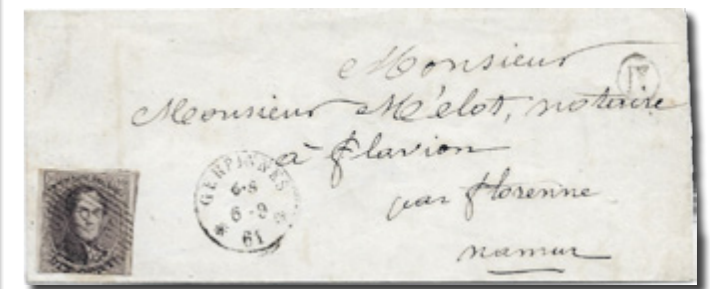 Monsieur
Monsieur Mélot, notaire
à Flavion
par Florenne
namur
GERPINNES
6-S
6-9
61